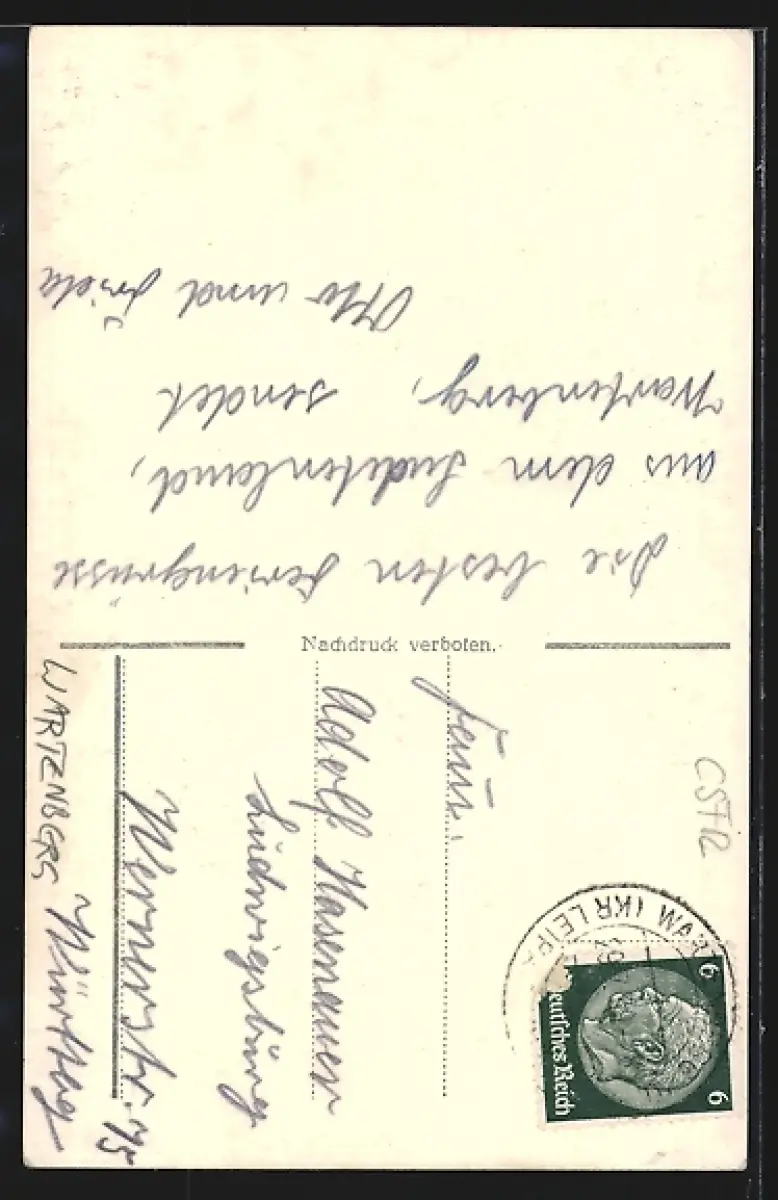 Die besten Feriengrüsse
aus dem Sudetenland,
Wartenberg, sendet
Otto und Frieda
Nachdruck verboten.
Fam.
Adolf Hasenauer
Ludwigsburg
Wernerstr. 75
Württbg
WARTENBERG
CSTR
(KR LEIPA
Deutsches Reich
6
6